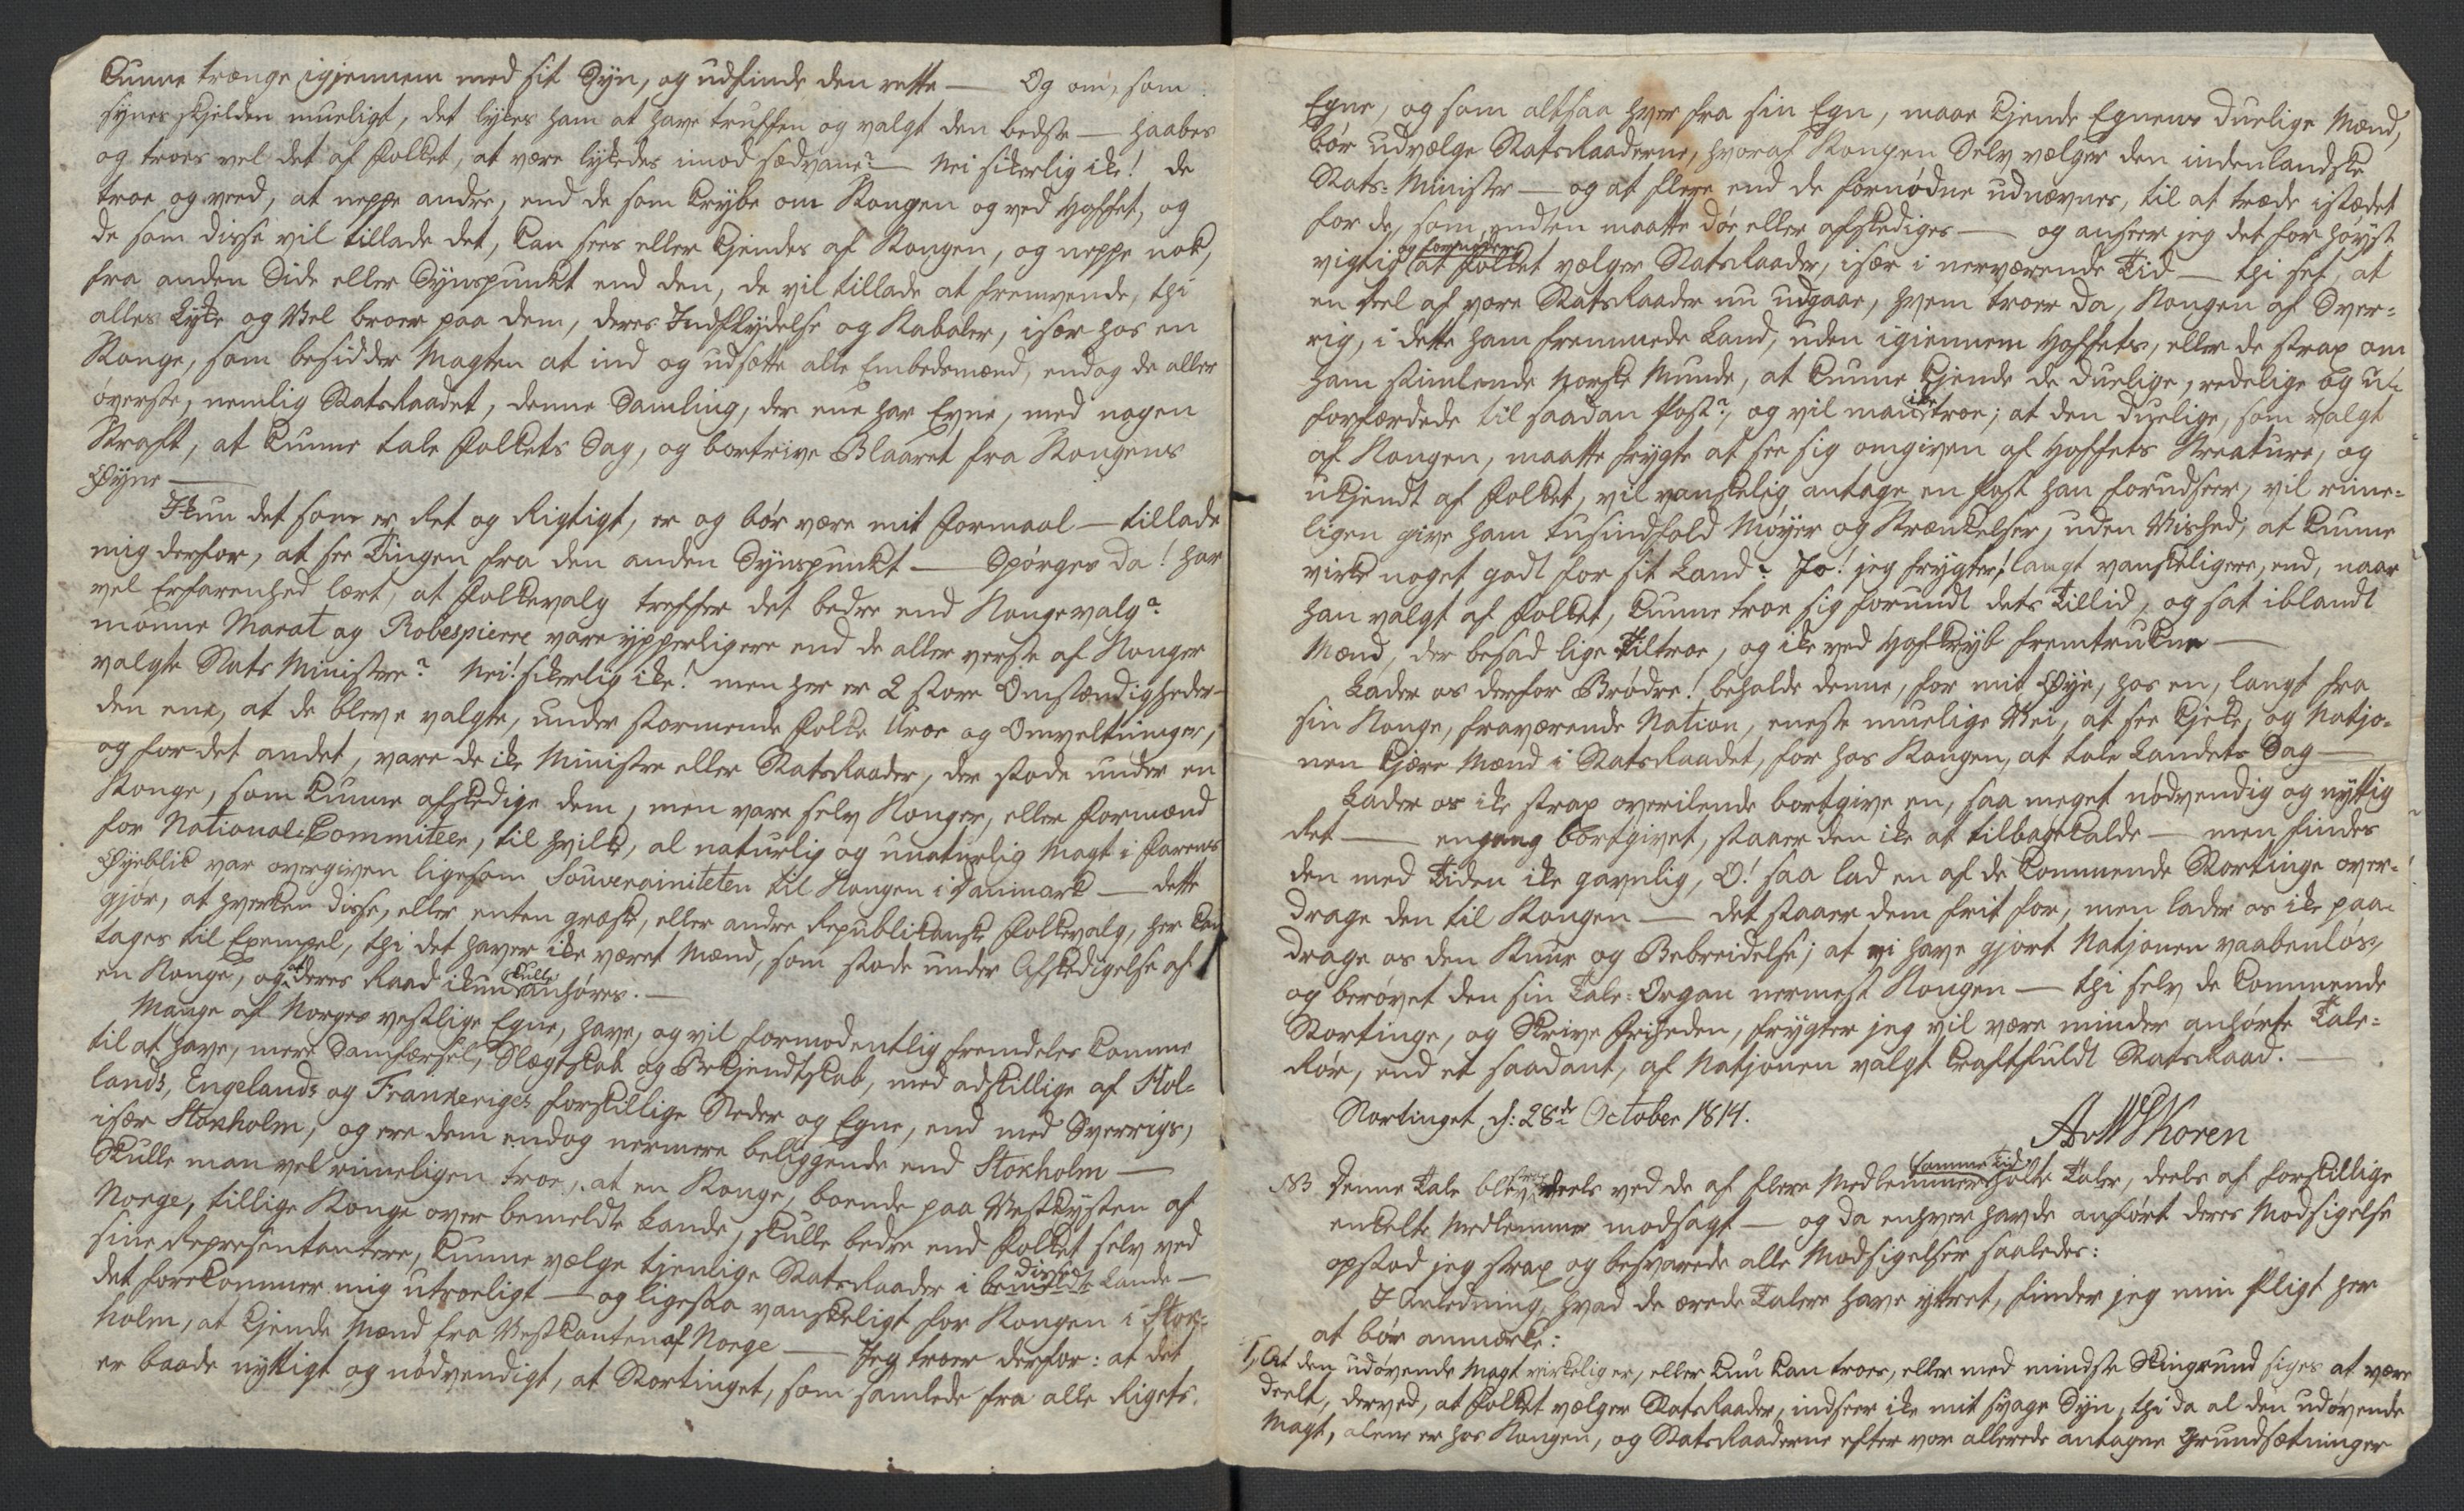 kunne trænge igjennem med sit Syn, og udfinde den rette — Og om, som
synes sjelden mueligt, det lykes ham at have truffen og valgt den bedste — haabes
og troes vel det af Folket, at være lykedes imod sædvane? — Nei sikerlig ike! de
troe og veed, at neppe andre, end de som krybe om Kongen og ved Hoffet, og
de som disse vil tillade det, kan sees eller kjendes af Kongen, og neppe nok,
fra anden Side eller Synspunkt end den, de vil tillade at fremvende, thi
alles Lykke og Vel beroer paa dem, deres Indflydelse og Kabaler, især hos en
Konge, som besidder Magten at ind og udsætte alle Embedsmænd, endog de aller
øverste, nemlig StatsRaadet, denne Samling, der ene har Evne, med nogen
Kraft, at kunne tale Folkets Sag, og bortrive Blaaret fra Kongens
Øyne —
Ikun det som er Ret og Rigtigt, er og bør være mit Formaal — tillade
mig derfor, at see Tingen fra den anden Synspunkt — Spørges da! har
vel Erfarenhed lært, at Folkevalg treffer det bedre end Kongevalg?
monne Marat og Robespierre vare ypperligere end de aller verste af Konger
valgte Stats Ministre? Nei! sikerlig ike! men her er 2 store Omstændigheder —
den ene, at de bleve valgte, under stormende Folke Uroe og Omveltninger,
og for det andet, vare de ike Ministre eller StatsRaader, der stode under en
Konge, som kunne afskedige dem, men vare selv Konger, eller Formænd
for National-Commiteer, til hvilk, al naturlig og unaturlig Magt i Farens
Øyeblik var overgiven ligesom Souverainiteten til Kongen i Danmark — dette
gjør, at hverken disse, eller enten græske, eller andre Republikanske Folkevalg, her kan
tages til Exempel, thi det haver ike været Mænd, som stode under Afskedigelse af
en Konge, og at deres Raad ikun skulle anhøres. —
Mange af Norges vestlige Egne, have, og vil formodentlig fremdeles komme
til at have, mere Samfærsel, Slægtskab og Bekjendtskab, med adskillige af Hol-
lands, Engelands og Frankeriges forskillige Steder og Egne, end med Sverrigs,
især Stokholm, og ere dem endog nermere beliggende end Stokholm —
Skulle man vel rimeligen troe, at en Konge, boende paa Vestkysten af
Norge, tillige Konge over bemeldte Lande, skulle bedre end Folket selv ved
sine Representantere, kunne vælge tjenlige StatsRaader i disse bemeldte Lande —
det forekommer mig utroeligt — og ligesaa vanskeligt for Kongen i Stok-
holm, at kjende Mænd fra Vestkanten af Norge — Jeg troer derfor: at det
er baade nyttigt og nødvendigt, at Stortinget, som samlede fra alle Rigets
Egne, og som altsaa hver fra sin Egn, maae kjende Egnens duelige Mænd,
bør udvælge StatsRaaderne, hvoraf Kongen Selv vælger den indenlandske
Stats-Minister — og at flere end de fornødne udnævnes, til at træde istædet
for de, som endten maatte døe eller afskediges — og anseer jeg det for høyst
vigtig og fornøden at Folket vælger StatsRaader, især i nerværende Tid — thi set, at
en deel af vore StatsRaader nu udgaae, hvem troer da, Kongen af Sver-
rig, i dette ham fremmede Land, uden igiennem Hoffets, eller de strax om
ham stimlende Norske Munde, at kunne kjende de duelige, redelige og u-
forfærdede til saadan Post? og vil man ike troe; at den duelige, som valgt
af Kongen, maatte frygte at see sig omgiven af Hoffets Kreature, og
ukjendt af Folket, vil vanskelig antage en Post han forudseer, vil rime-
ligen give ham tusindfold Møyer og Krænkelser, uden Vished, at kunne
virke noget godt for sit Land? Jo! jeg frygter! langt vanskeligere, end, naar
han valgt af Folket, kunne troe sig forundt dets Tillid, og sat iblandt
Mænd, der besad lige Tiltroe, og ike ved Hofkryb fremtrukne —
Lader os derfor Brødre! beholde denne, for mit Øye, hos en, langt fra
sin Konge, fraværende Nation, eneste muelige Vei, at see kjeke, og Natjo-
nen kjære Mænd i StatsRaadet, for hos Kongen, at tale Landets Sag —
Lader os ike strax overilende bortgive en, saa meget nødvendig og nyttig
Ret — engang bortgivet, staaer den ike at tilbagekalde — men findes
den med Tiden ike gavnlig, O! saa lad en af de kommende Stortinge over-
drage den til Kongen — det staaer dem frit for, men lader os ike paa-
drage os den Ruur og Bebreidelse; at vi have gjort Natjonen vaabenløs,
og berøvet den sin Tale-Organ nermest Kongen — thi selv de kommende
Stortinge, og Skrive Friheden, frygter jeg vil være minder anhørte Tale-
Rør, end et saadant, af Natjonen valgt kraftfuldt StatsRaad. —
Stortinget, d: 28de October 1814.
A v W Koren
NB Denne Tale blev deels ved de af flere Medlemmer samme Tid holte Taler, deels af forskillige
enkelte Medlemmer modsagt — og da enhver havde anført deres Modsigelse
opstod jeg strax og besvarede alle Modsigelser saaledes:
I Anledning, hvad de ærede Talere have yttret, finder jeg min Pligt her
at bør anmærke:
1, At den udøvende Magt virkelig er, eller kun kan troes, eller med mindste Skingrund siges at være
deelt, derved, at Folket vælger StatsRaader, indseer ike mit svage Syn, thi da al den udøvende
Magt, alene er hos Kongen, og StatsRaaderne efter vor allerede antagne Grundsætninger